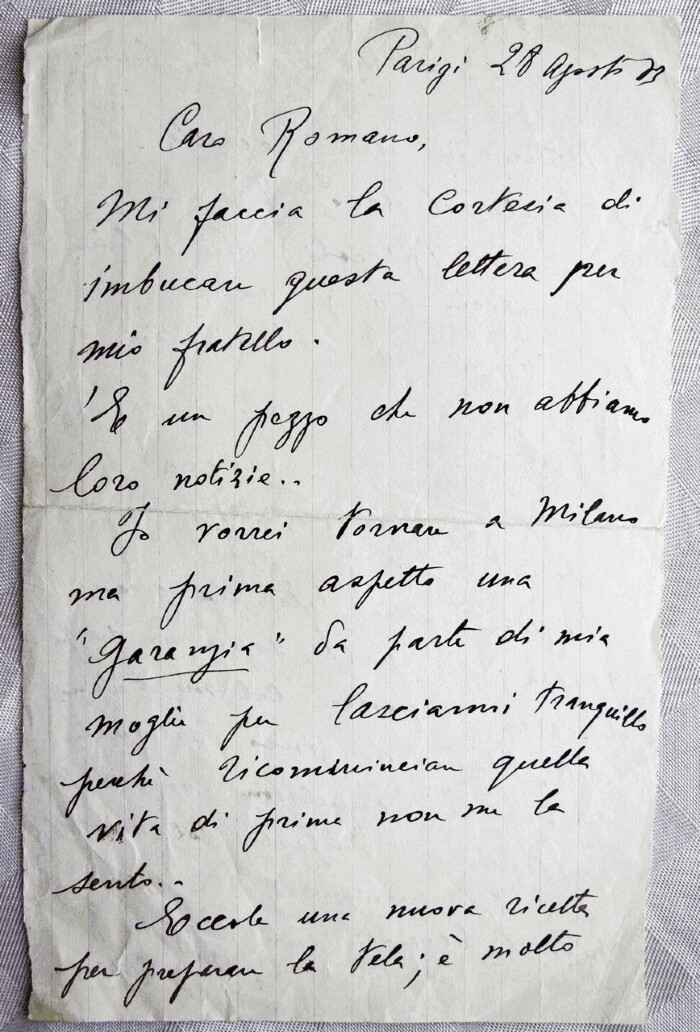 Parigi 28 Agosto 33
Caro Romano,
Mi faccia la cortesia di
imbucare questa lettera per
mio fratello.
'E un pezzo che non abbiamo
loro notizie..
Io vorrei tornare a Milano
ma prima aspetto una
"Garanzia" da parte di mia
moglie per lasciarmi tranquillo
perchè ricominciare quella
vita di prima non me la
sento..
Eccole una nuova ricetta
per preparare la tela; è molto